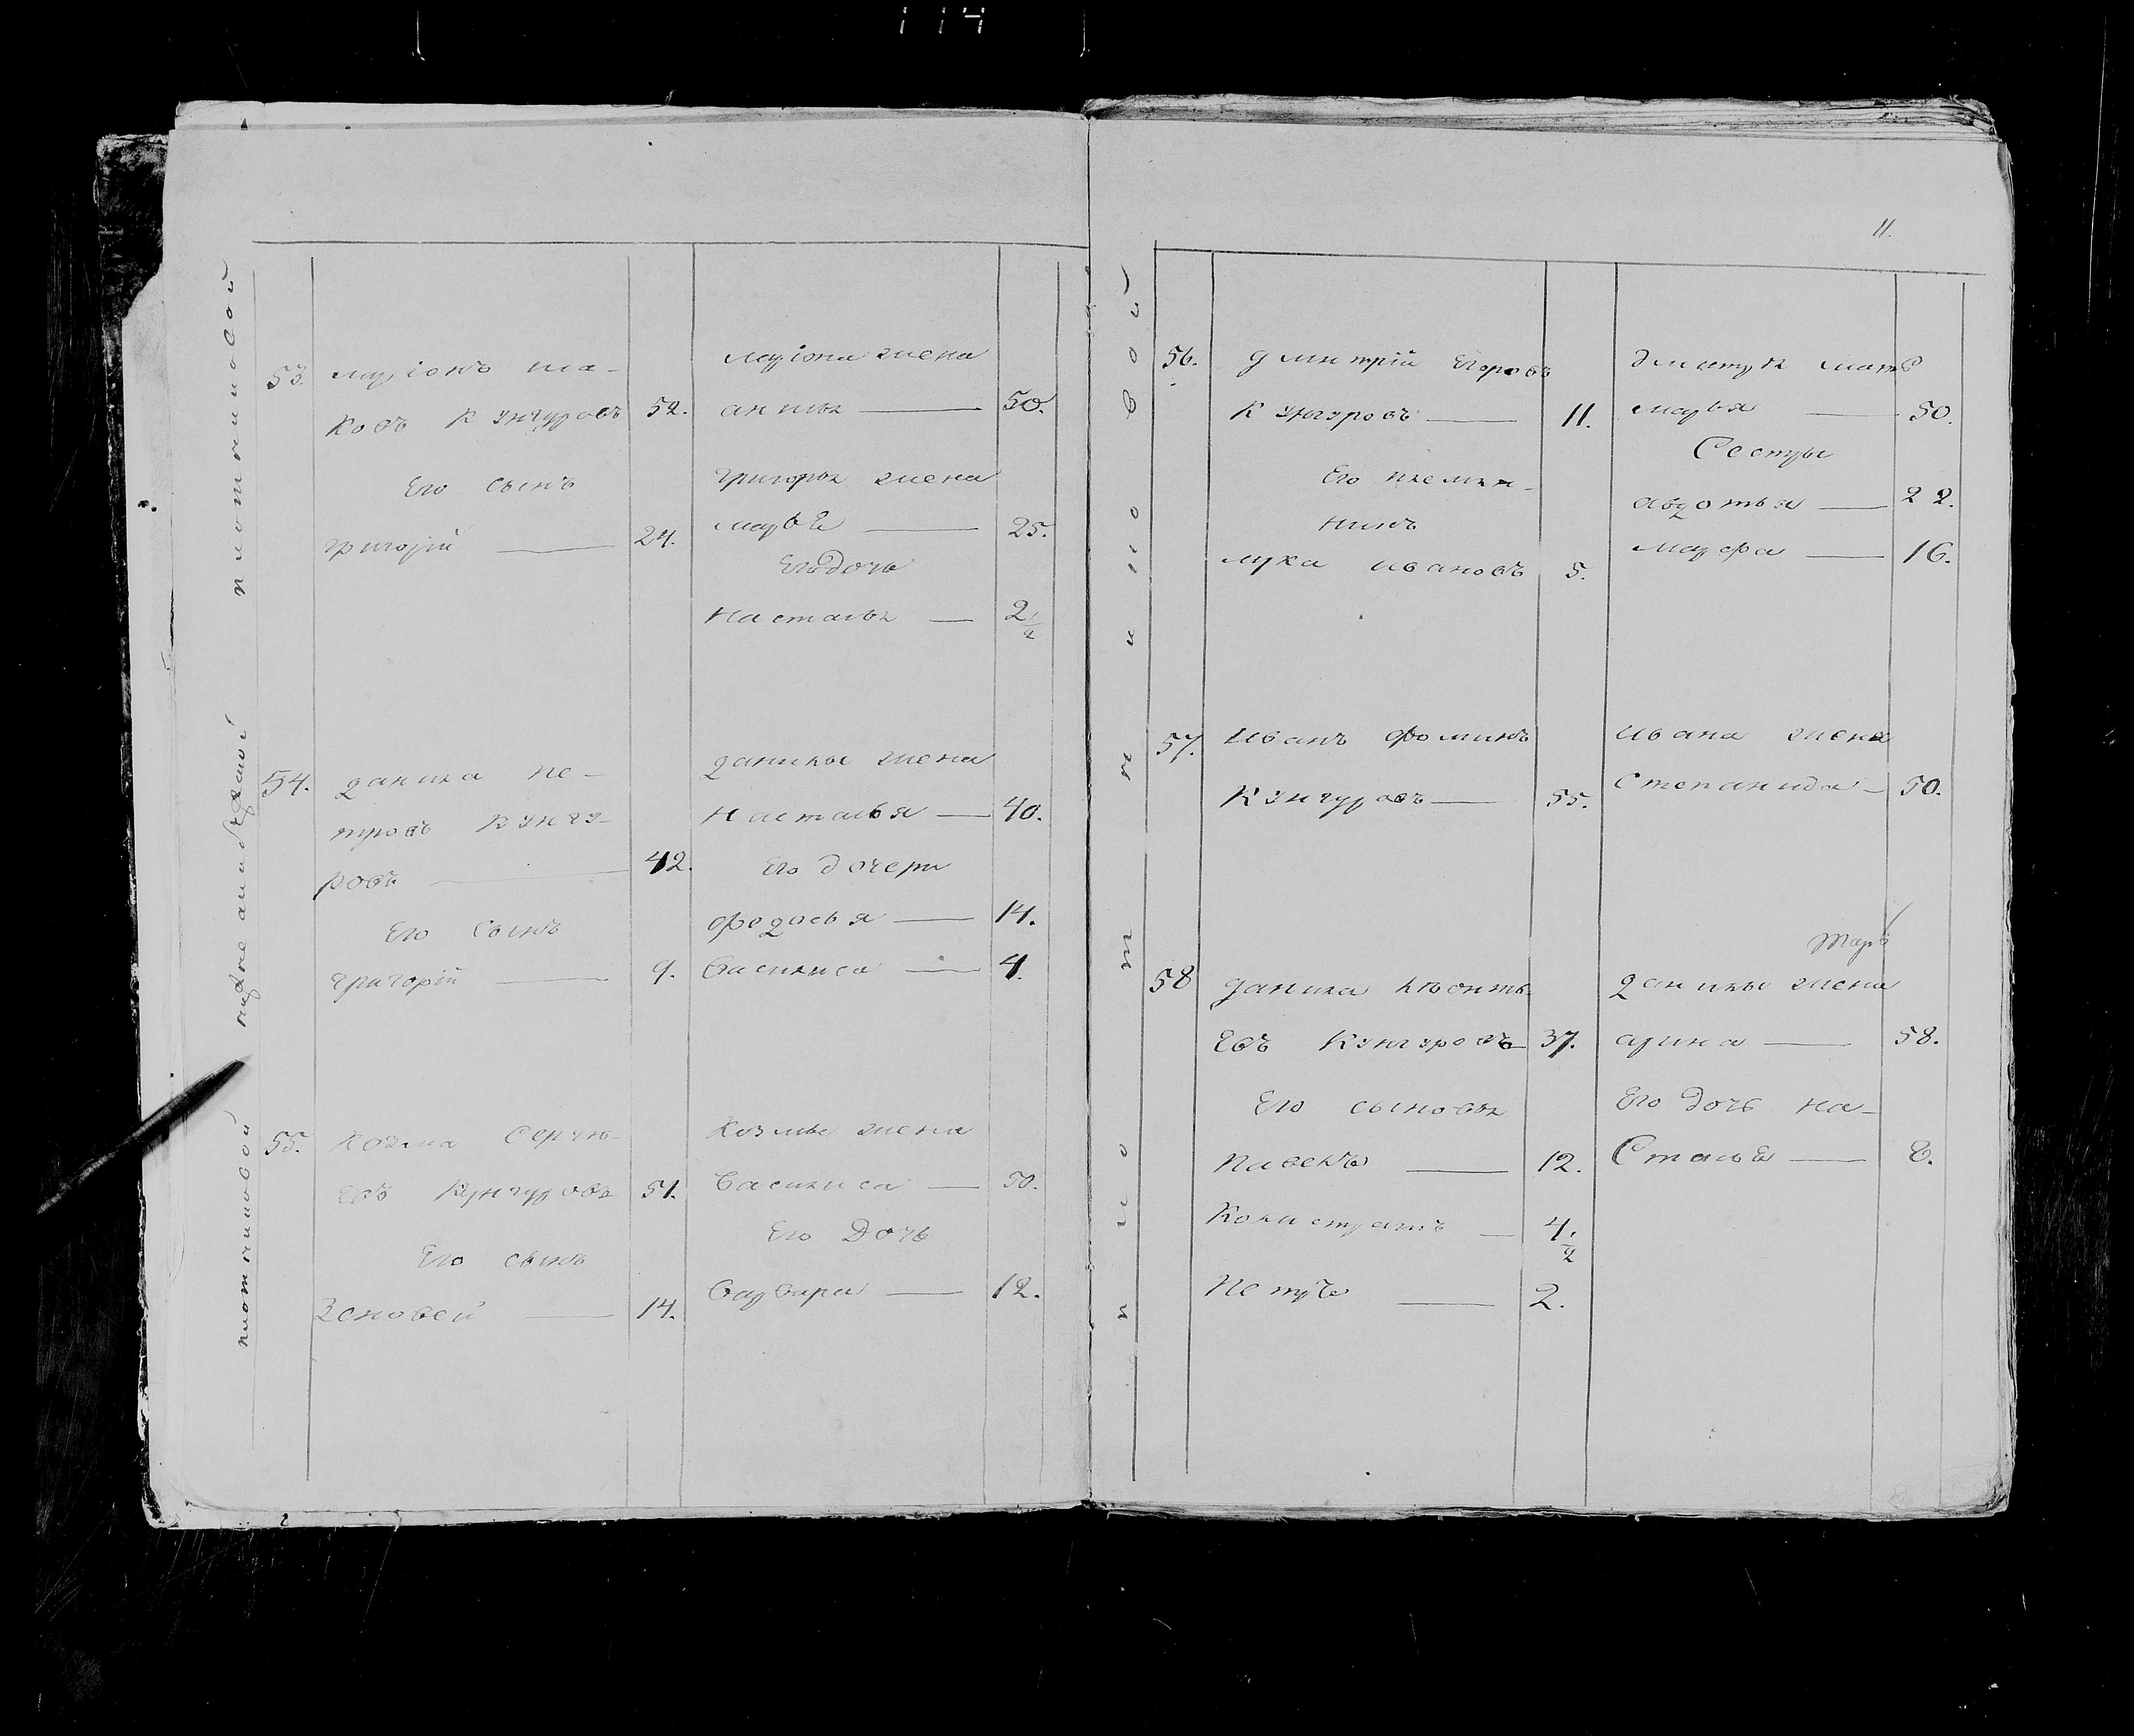 114
53. Ларіонъ Ма-
ковъ Кунгуровъ 52.
Его сынъ
григорій 24.
Ларіона жена
анна 50.
григорья жена
марья 25.
Его дочь
Насталья 2 1/2
54. данила Пе-
тровъ Кунгу-
ровъ 42.
Его сынъ
григорій 9.
данилы жена
Насталья 40.
Его дочери
федосья 14.
Василиса 4.
55. Козма Сергѣ-
евъ Кунгуровъ 51.
Его сынъ
Зеновей 14.
Козмы жена
Василиса 50.
Его Дочь
Варвара 12.
11.
56. дмитрій Егоровъ
Кунгуровъ 11.
Его племян-
никъ
лука ивановъ 5.
дмитрія мать
марья 50.
Сестры
авдотья 22.
Марфа 16.
57. иванъ фоминъ
Кунгуровъ 55.
ивана жена
Степанида 50.
58 данила лѣонть-
евъ Кунгуровъ 37.
Его сыновья
Павелъ 12.
Калистратъ 4 1/2
Петръ 2.
данилы жена
арина 58.
Его дочь На-
Сталья 8.